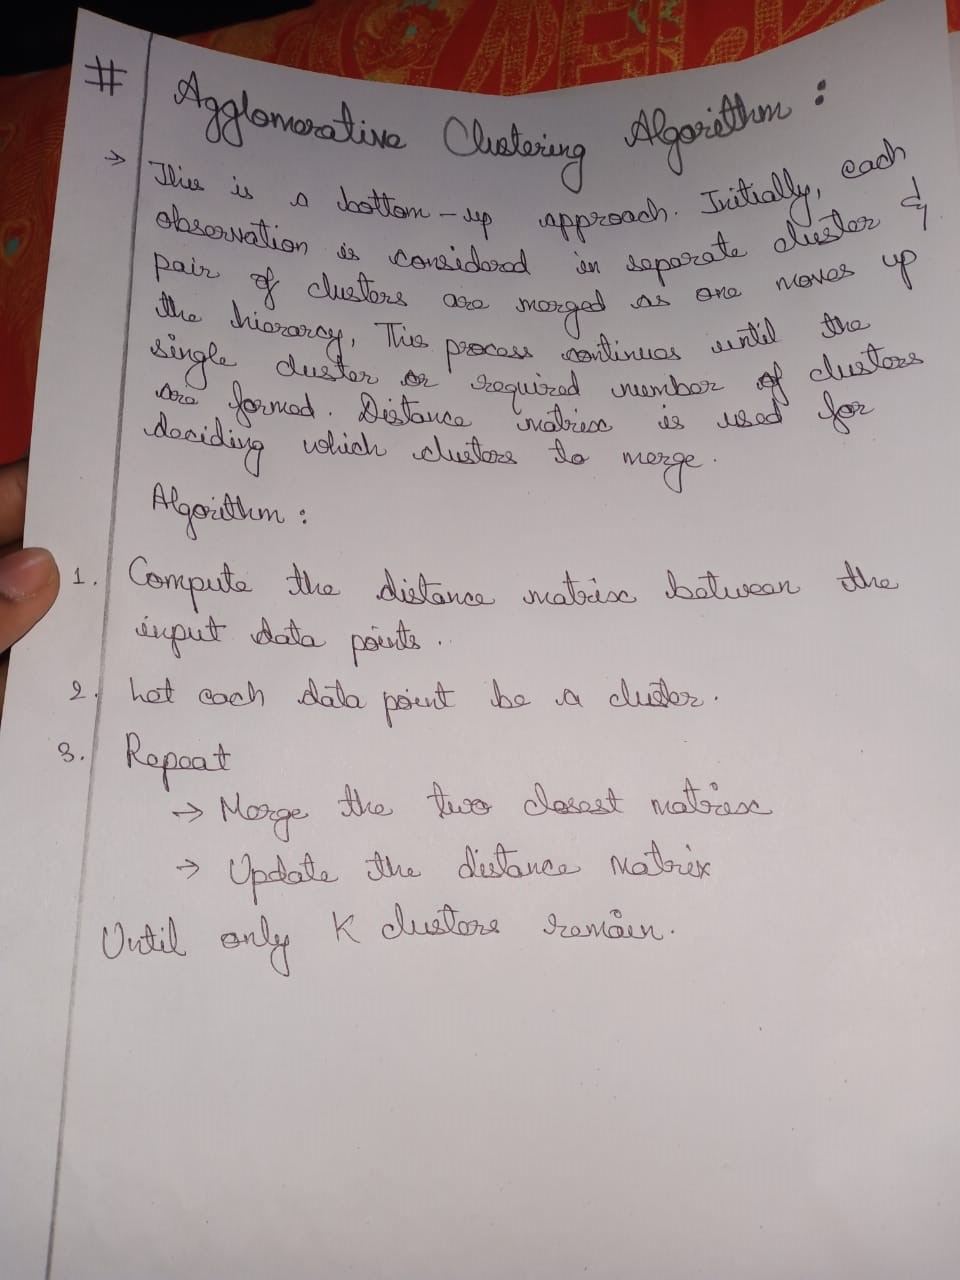 # Agglomerative Clustering Algorithm :
→ This is a bottom-up approach. Initially, each
observation is considered in separate cluster &
pair of clusters are merged as one moves up
the hierarcy, This process continues until the
single cluster or required number of clusters
are formed. Distance matrix is used for
deciding which clusters to merge.
Algorithm :
1. Compute the distance matrix between the
input data points.
2. Let each data point be a cluster.
3. Repeat
→ Merge the two closest matrix
→ Update the distance matrix
Until only K clusters remain.